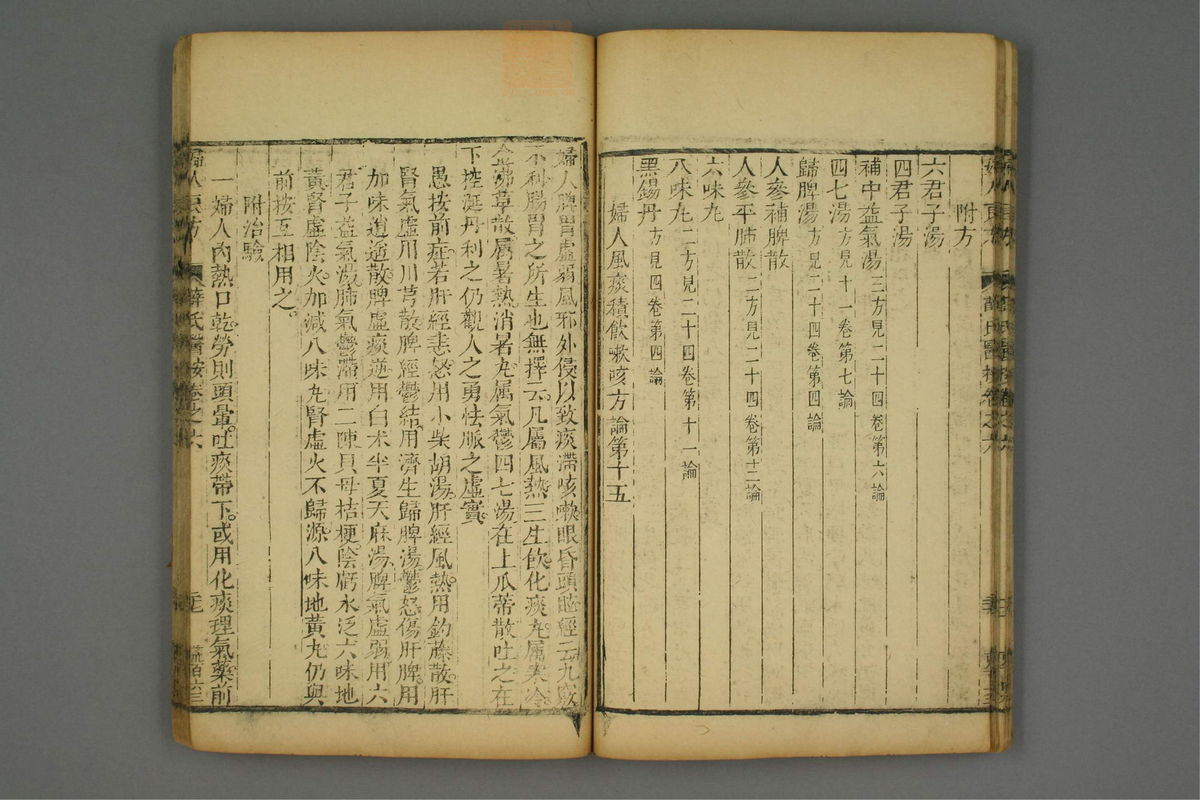 附方
六君子湯
四君子湯
補中益氣湯三方見二十四卷第六論
四七湯方見十一卷第七論
歸脾湯方見二十四卷第四論
人參補脾散
人參平肺散二方見二十四卷第十二論
六味丸
八味丸二方見二十四卷第十一論
黑錫丹方見四卷第四論
婦人風痰積飲嗽咳方論第十五
婦人脾胃虛弱風邪外侵以致痰滯咳嗽眼昏頭眩經云九竅
不利腸胃之所生也無擇云凡屬風熱三生飲化痰丸屬寒冷
沸草散屬暑熱消暑丸屬氣鬱四七湯在上瓜蒂散吐之在
下控涎丹利之仍觀人之勇怯脈之虛實
愚按前症若肝經恚怒用小柴胡湯肝經風熱用鈎藤散肝
腎氣虛用川芎散脾經鬱結用濟生歸脾湯鬱怒傷肝脾用
加味逍遥散脾虛痰逆用白朮半夏天麻湯脾氣虛弱用六
君子益氣湯肺氣鬱滯用二陳貝母桔梗陰虧水泛六味地
黃腎虛陰火加減八味丸腎虛火不歸源八味地黃丸仍與
前按互相用之
附治驗
一婦人內熱口乾勞則頭暈吐痰帶下或用化痰理氣藥前
婦人良方
薛氏醫按卷之六